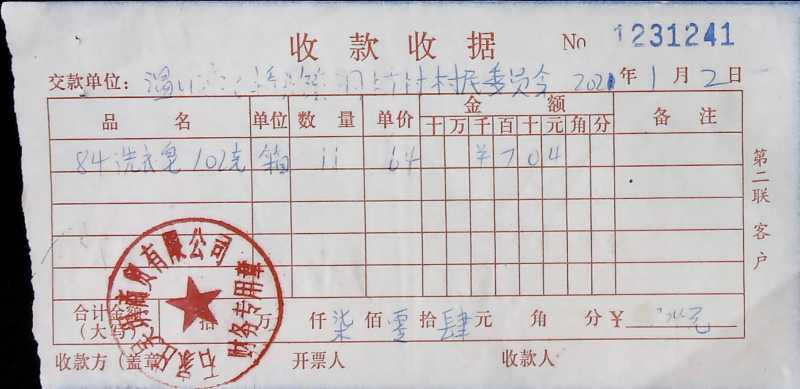 收款收据 No 1231241
交款单位: 村民委员会 2021年1月2日
品名 单位 数量 单价 金额 备注
十万千百十元角分
84洗衣皂102克 箱 11 64 ¥704
合计金额(大写) 拾 万 仟 柒佰 零拾 肆元 角 分 ¥
收款方(盖章) 开票人 收款人
第二联 客户
商贸有限公司
财务专用章